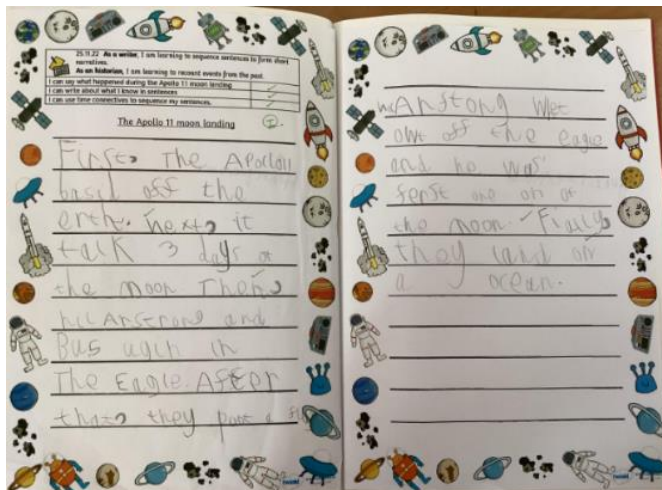 25.11.22 As a writer, I am learning to sequence sentences to form short
narratives.
As an historian, I am learning to recount events from the past.
I can say what happened during the Apollo 11 moon landing
I can write about what I know in sentences
I can use time connectives to sequence my sentences.
The Apollo 11 moon landing
First, The Apollo11
off the
erth. Next, it
talk 3 days at
the moon Then,
nil Anstrong and
Bus ugin in
The Eagle. After
that, they poot a
Anstong wet
owt off the eagle
and he was
ferst one on at
the moon. Finally,
they land on
a ocean.